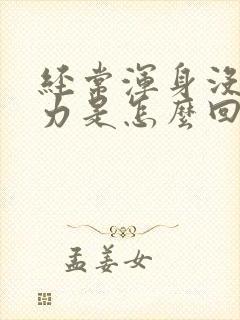 經常渾身沒
力是怎麼回
孟姜女